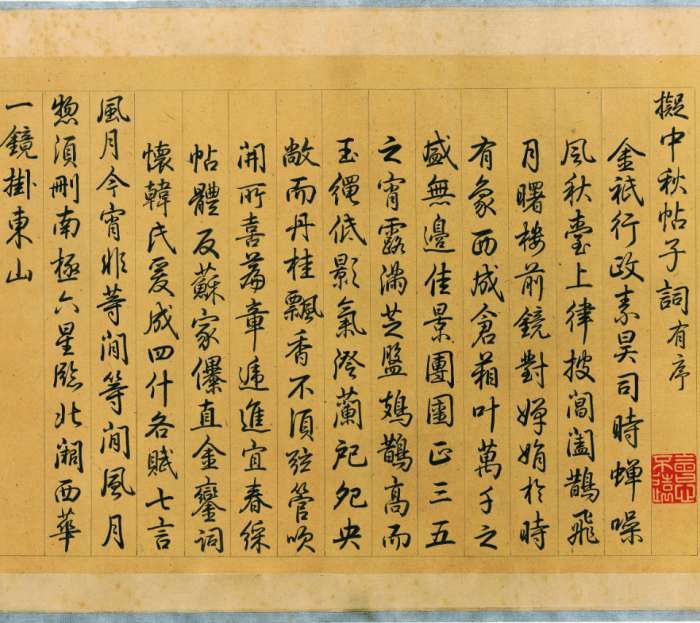 擬中秋帖子詞有序
金祇行政素昊司時蟬噪
風秋臺上律披閶闔鵲飛
月曙樓前鏡對嬋娟於時
有象西成倉箱叶萬千之
盛無邊佳景團圞正三五
之宵露滿芝盤鳷鵲高而
玉繩低影氣澄蘭戺夗央
敞而丹桂飄香不須弦管吹
開所喜篇章遞進宜春綵
帖體反蘇家儤直金鑾詞
懷韓氏爰成四什各賦七言
風月今宵非等閒等閒風月
總須刪南極六星臨北闕西華
一鏡掛東山